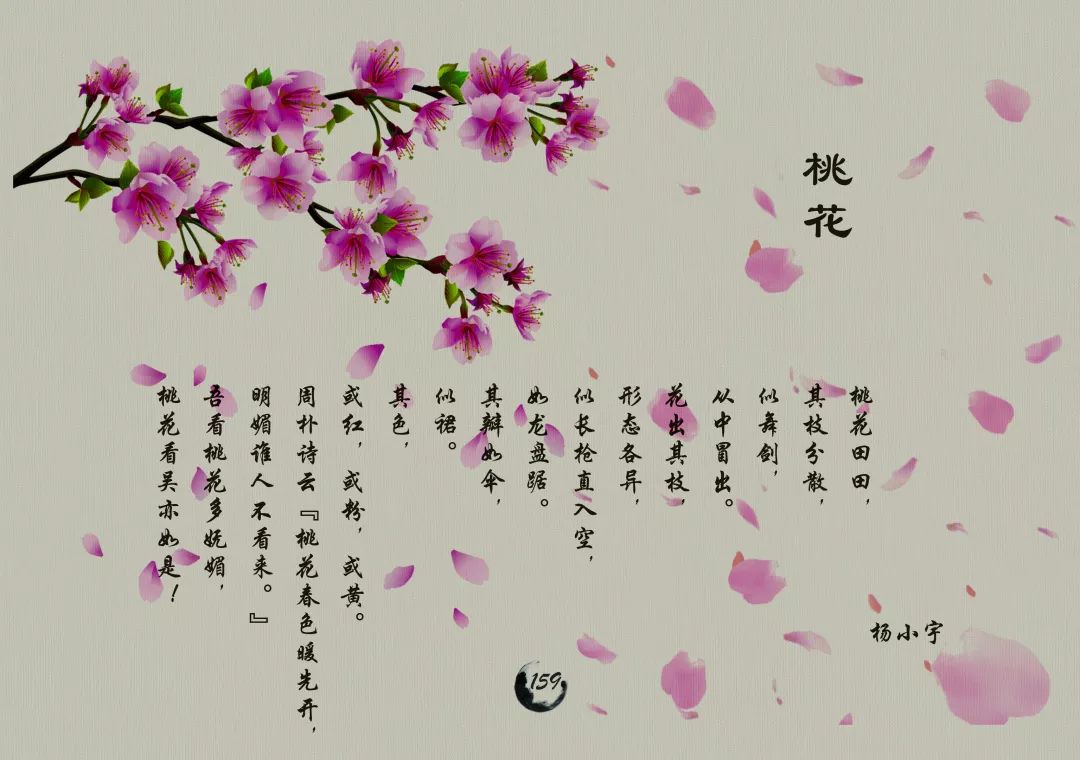 桃花
桃花田田，
其枝分散，
似舞剑，
从中冒出。
花出其枝，
形态各异，
似长枪直入空，
如龙盘踞。
其瓣如伞，
似裙。
其色，
或红，或粉，或黄。
周朴诗云『桃花春色暖先开，
明媚谁人不看来。』
吾看桃花多妩媚，
桃花看吴亦如是！
杨小宇
159